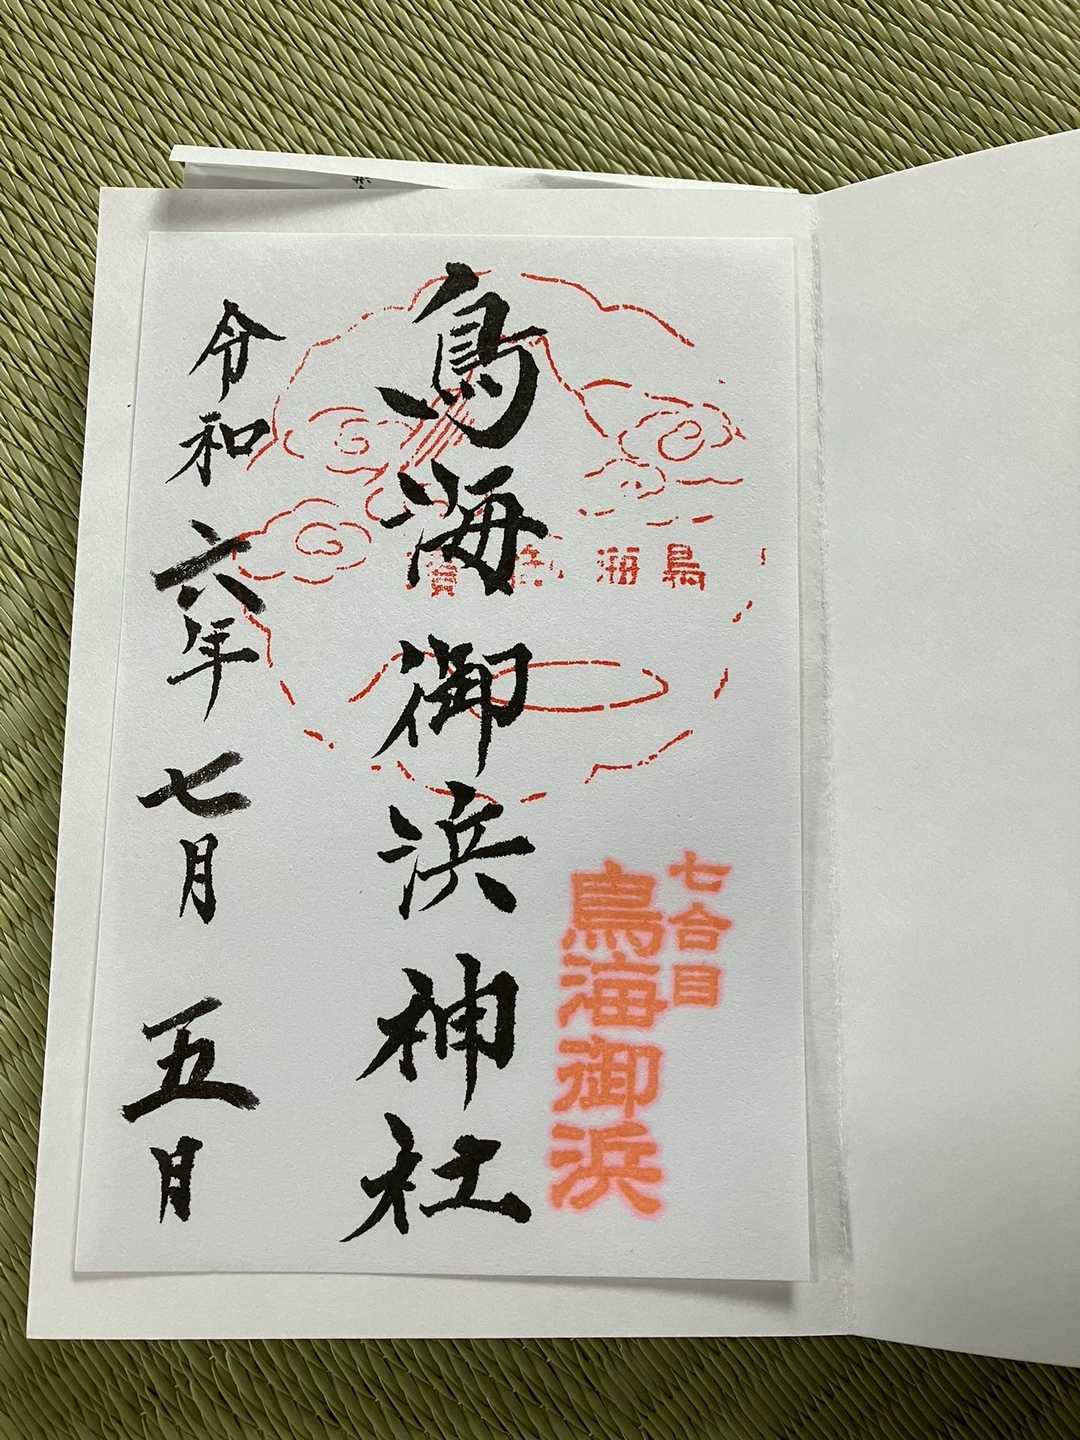 七合目
鳥海御浜
鳥海
鳥海御浜神社
令和六年七月五日